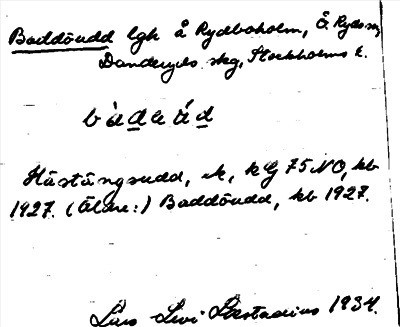 Baddöudd lgh å Rydboholm, Ö. Ryds sn,
Danderyds skg, Stockholms l.
bàdaúd
Hästängsudd, ek, kG 75 NO, kb
1927. (Äldre:) Baddöudd, kb 1927.
Lars Levi Læstadius 1934.